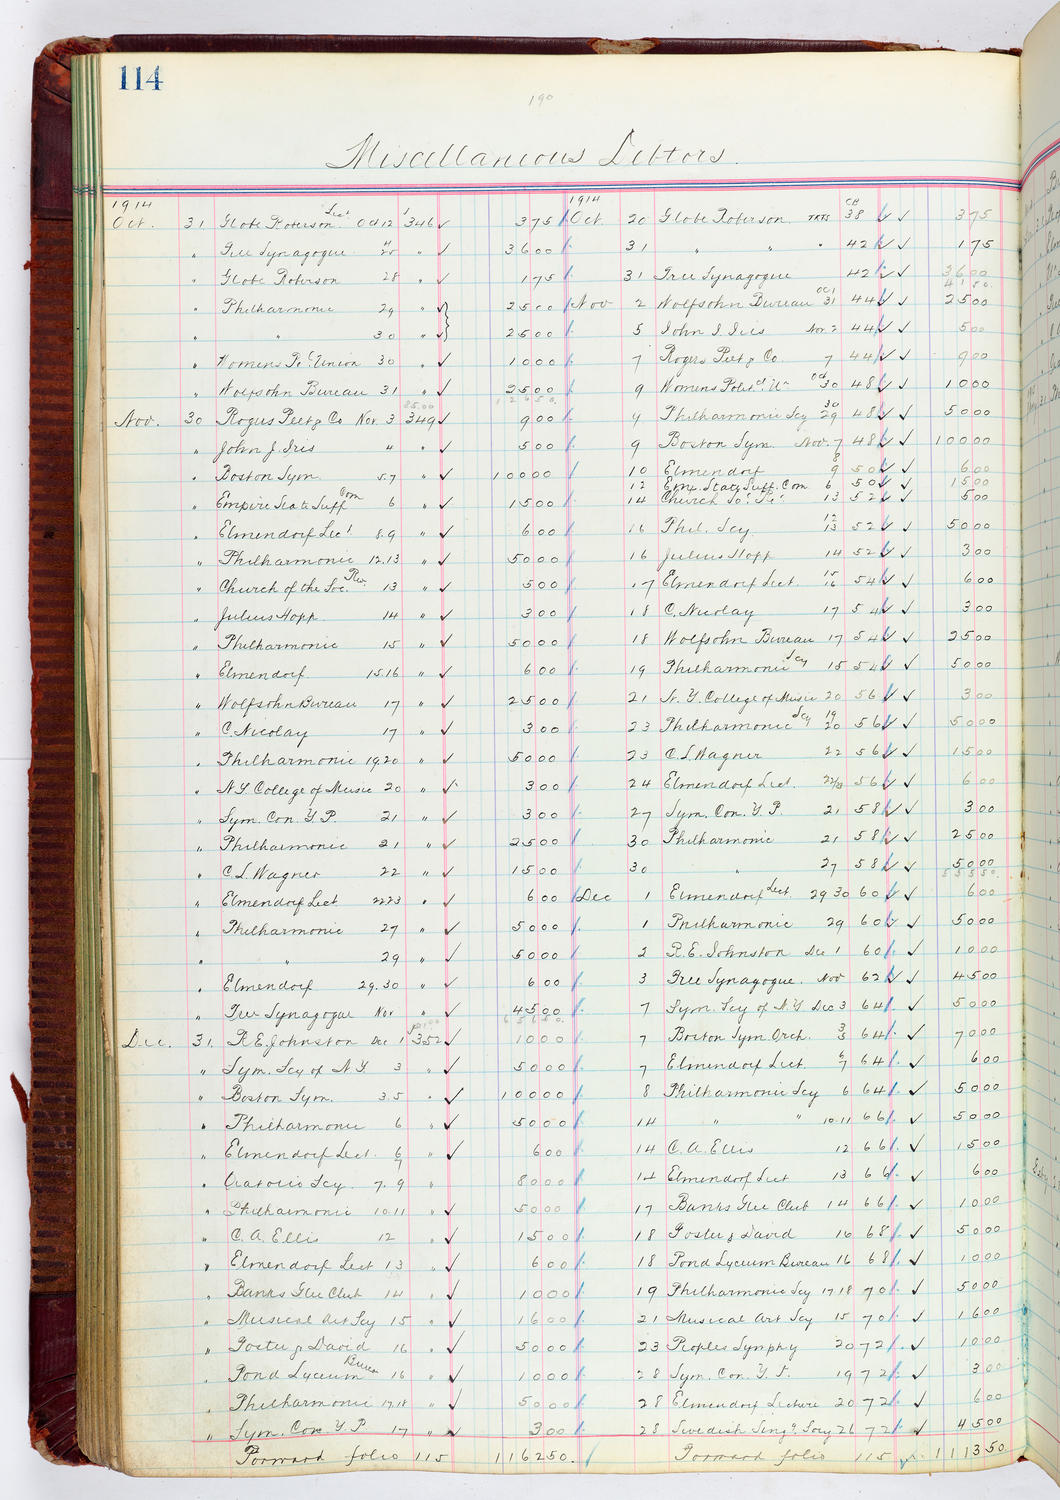 114
190
Miscellanious Debtors.
1914 1914
Oct. 31 Globe Roberson Lect Oct 12 J 346 375 Oct. 20 Globe Roberson TKTS CB 38 375
" Free Synagogue " 20 " 3600 31 " " " 42 175
" Globe Roberson 28 " 175 31 Free Synagogue 42 3600
4150.
" Philharmonic 29 " 2500 Nov 2 Wolfsohn Bureau Oct 31 44 2500
" " 30 " 2500 5 John J. Iris Nov. 2 44 500
" Womens Po. Union 30 " 1000 7 Rogers Peet & Co. 7 44 900
" Wolfsohn Bureau 31 " 2500 9 Womens Polit. Un Oct 30 48 1000
12650.
Nov. 30 Rogers Peet & Co Nov. 3 349 900 9 Philharmonic Scy 30 29 48 5000
" John J. Iris " " 500 9 Boston Sym. Nov. 7 48 10000
" Boston Sym. 5.7 " 10000 10 Elmendorf 8 9 50 600
12 Emp. State Suff. Com 6 50 1500
" Empire State Suff Com 6 " 1500 14 Church So. Re. 13 52 500
" Elmendorf Lect 8.9 " 600 16 Phil. Scy 12 13 52 5000
" Philharmonic 12.13 " 5000 16 Julius Hopp 14 52 300
" Church of the Soc. Rev. 13 " 500 17 Elmendorf Lect 15 16 54 600
" Julius Hopp 14 " 300 18 C. Nicolay 17 54 300
" Philharmonic 15 " 5000 18 Wolfsohn Bureau 17 54 2500
" Elmendorf 15.16 " 600 19 Philharmonic Scy 15 54 5000
" Wolfsohn Bureau 17 " 2500 21 N. Y. College of Music 20 56 300
" C. Nicolay 17 " 300 23 Philharmonic Scy 19 20 56 5000
" Philharmonic 19.20 " 5000 23 C. L. Wagner 22 56 1500
" N.Y. College of Music 20 " 300 24 Elmendorf Lect. 22/23 56 600
" Sym. Con. Y. P. 21 " 300 27 Sym. Con. Y. P. 21 58 300
" Philharmonic 21 " 2500 30 Philharmonic 21 58 2500
" C. L. Wagner 22 " 1500 30 " 27 58 5000
55550.
" Elmendorf Lect 22 23 " 600 Dec 1 Elmendorf Lect. 29 30 60 600
" Philharmonic 27 " 5000 1 Philharmonic 29 60 5000
" " 29 " 5000 2 R. E. Johnston Dec 1 60 1000
" Elmendorf 29.30 " 600 3 Free Synagogue. Nov 62 4500
" Free Synagogue Nov " 4500 7 Sym. Scy of N.Y. Dec 3 64 5000
Dec. 31. R. E. Johnston Dec 1 352 1000 7 Boston Sym Orch. 3 5 64 7000
" Sym. Scy of N.Y 3 " 5000 7 Elmendorf Lect. 6 7 64 600
" Boston Sym. 3.5 " 10000 8 Philharmonic Scy 6 64 5000
" Philharmonic 6 " 5000 14 " " 10.11 66 5000
" Elmendorf Lect. 6 7 " 600 14 C. A. Ellis 12 66 1500
" Oratorio Scy. 7. 9 " 8000 14 Elmendorf Lect 13 66 600
" Philharmonic 10.11 " 5000 17 Banks Glee Club 14 66 1000
" C. A. Ellis 12 " 1500 18 Foster & David 16 68 5000
" Elmendorf Lect 13 " 600 18 Pond Lyceum Bureau 16 68 1000
" Banks Glee Club 14 " 1000 19 Philharmonic Scy 17 18 70 5000
" Musical Art Scy 15 " 1600 21 Musical Art Scy 15 70 1600
" Foster & David 16 " 5000 23 Peoples Symphy 20 72 1000
" Pond Lyceum Bureau 16 " 1000 28 Sym. Con. Y. P. 19 72 300
" Philharmonic 17.18 " 5000 28 Elmendorf Lecture 20 72 600
" Sym. Con. Y. P. 17 " 300 28 Swedish Sing. Socy 26 72 4500
Forward folio 115 116250. Forward folio 115 111350